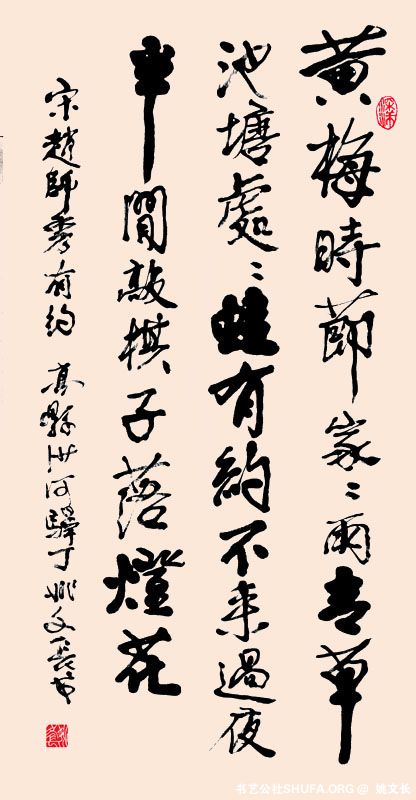 黄梅時節家〻雨青草
池塘處〻蛙有約不来過夜
半閒敲棋子落燈花
宋趙師秀有約 高縣沙河驛丁姚文長书
书艺公社SHUFA.ORG @ 姚文长